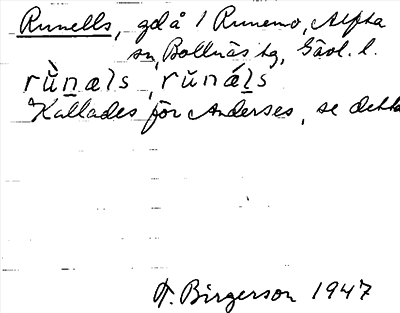 Runells, gd å 1 Runemo, Alfta
sn, Bollnäs tg, Gävl. l.
rùnæls, runǽls
Kallades för Anderses, se detta
F. Birgerson 1947